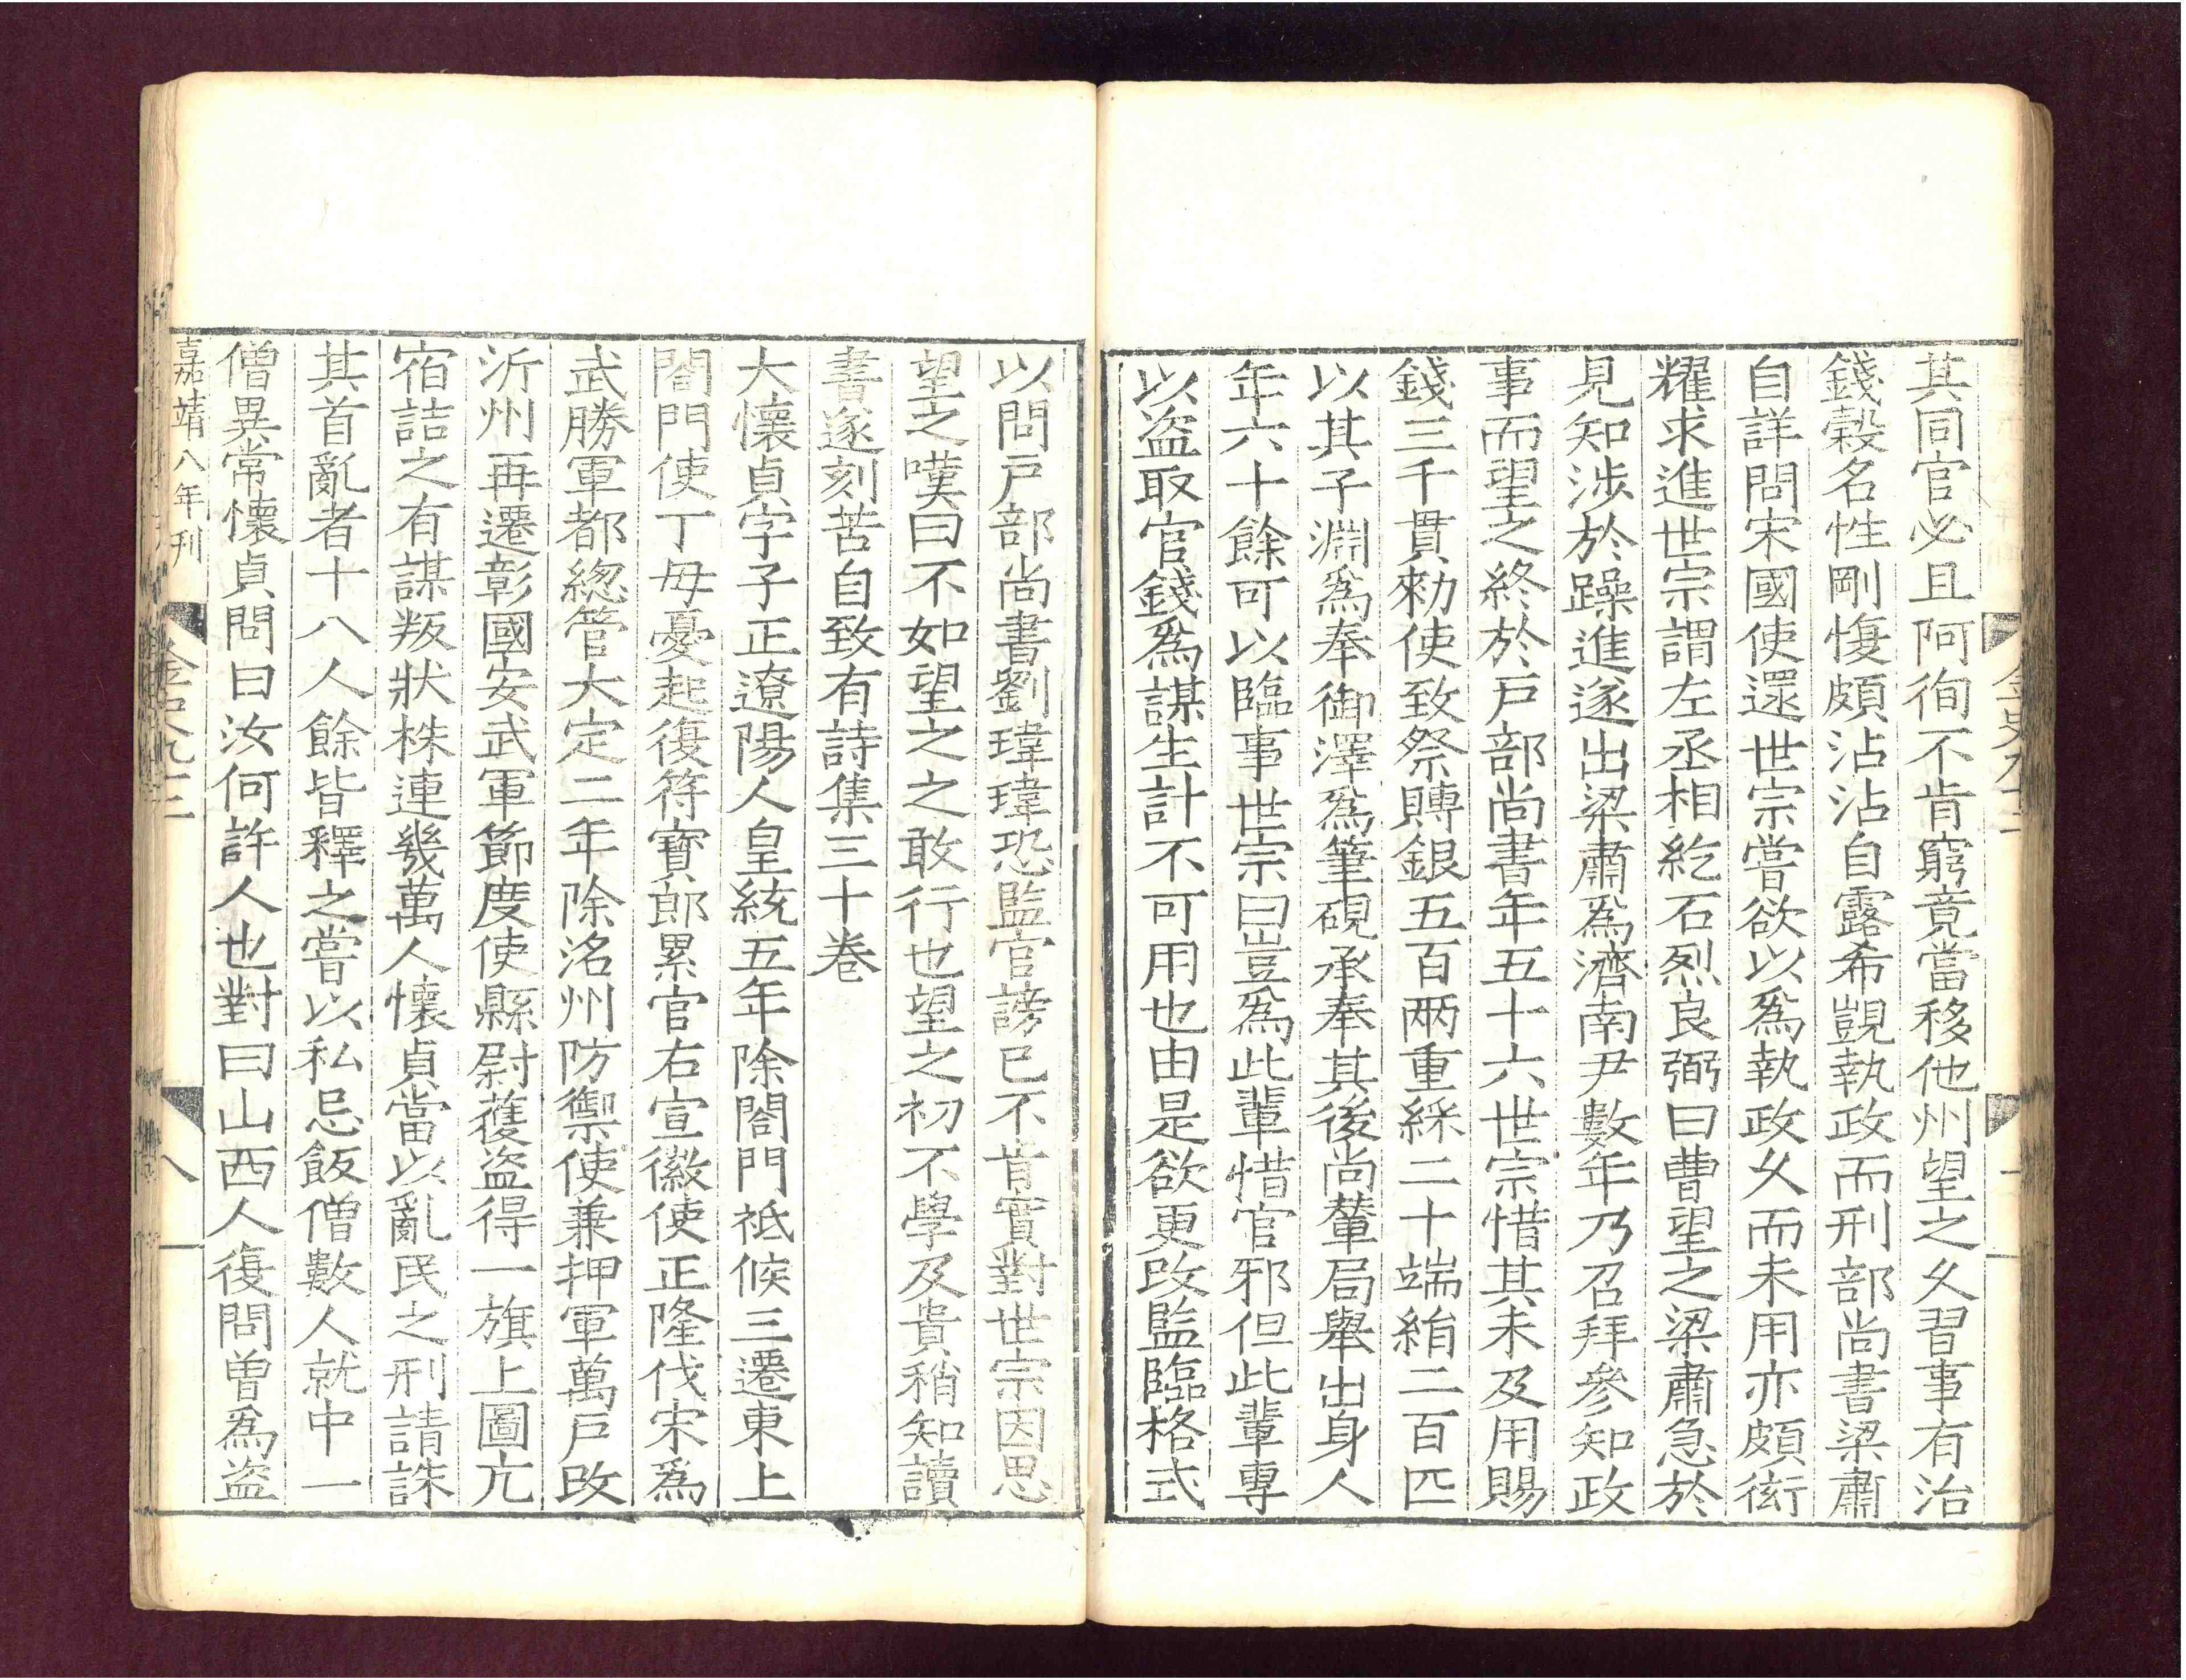 其同官必且阿徇不肯窮竟當移他州望之久習事有治
錢穀名性剛愎頗沾沾自露希覬執政而刑部尚書梁肅
自詳問宋國使還世宗嘗欲以爲執政久而未用亦頗衒
耀求進世宗謂左丞相紇石烈良弼曰曹望之梁肅急於
見知涉於躁進遂出梁肅爲濟南尹數年乃召拜參知政
事而望之終於戶部尚書年五十六世宗惜其未及用賜
錢三千貫勑使致祭賻銀五百兩重綵二十端絹二百匹
以其子淵爲奉御澤爲筆硯承奉其後尚輦局舉出身人
年六十餘可以臨事世宗曰豈爲此輩惜官邪但此輩專
以盜取官錢爲謀生計不可用也由是欲更改監臨格式
以問戶部尚書劉瑋瑋恐監官謗已不肯實對世宗因思
望之嘆曰不如望之之敢行也望之初不學及貴稍知讀
書遂刻苦自致有詩集三十卷
大懷貞字子正遼陽人皇統五年除閤門祗候三遷東上
閤門使丁母憂起復符寶郎累官右宣徽使正隆伐宋爲
武勝軍都緫管大定二年除洺州防禦使兼押軍萬戶改
沂州再遷彰國安武軍節度使縣尉獲盜得一旗上圖亢
宿詰之有謀叛狀株連幾萬人懷貞當以亂民之刑請誅
其首亂者十八人餘皆釋之嘗以私忌飯僧數人就中一
僧異常懷貞問曰汝何許人也對曰山西人復問曾爲盜
嘉靖八年刊
金史九十二
八